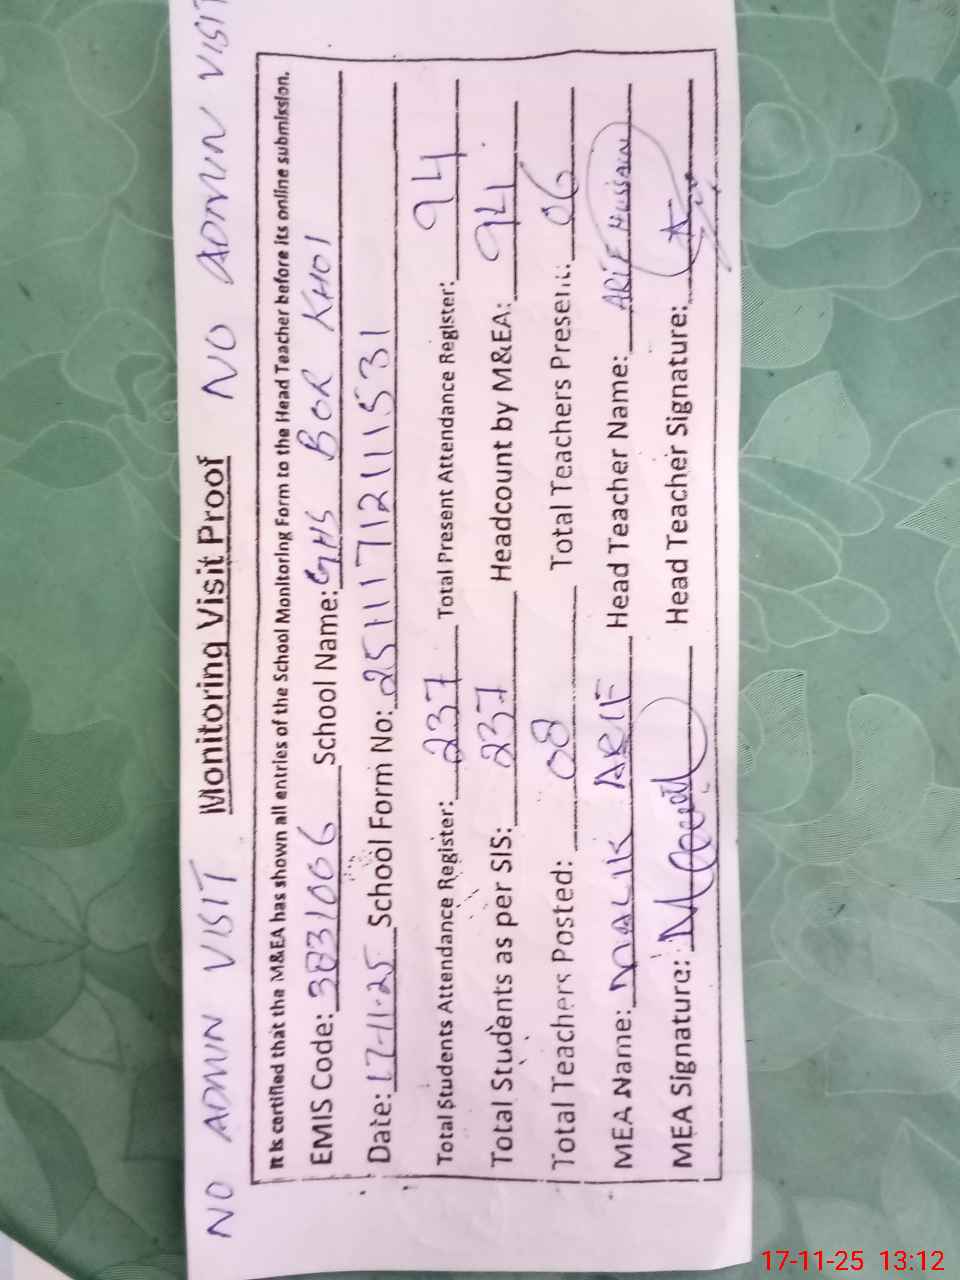 NO ADMIN VISIT Monitoring Visit Proof NO ADMIN VISIT
It is certified that the M&EA has shown all entries of the School Monitoring Form to the Head Teacher before its online submission.
EMIS Code: 3831006 School Name: GHS BOR KHOI
Date: 17-11-25 School Form No: 251117121111531
Total Students Attendance Register: 237 Total Present Attendance Register: 94
Total Students as per SIS: 237 Headcount by M&EA: 94
Total Teachers Posted: 08 Total Teachers Present: 06
MEA Name: MALIK ARIF Head Teacher Name: ARIF Hussain
MEA Signature: Head Teacher Signature:
17-11-25 13:12